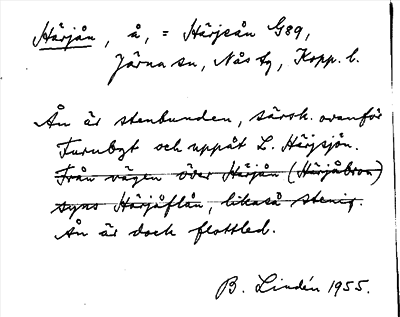 Härjån, å, = Härjeån G89,
Järna sn, Nås tg, Kopp. l.
Ån är stenbunden, särsk. ovanför
Furubgt och uppåt L. Härjsjön.
Från vägen över Härjån (Härjåbron)
syns Härjåflån, likaså stenig.
Ån är dock flottled.
B. Lindén 1955.